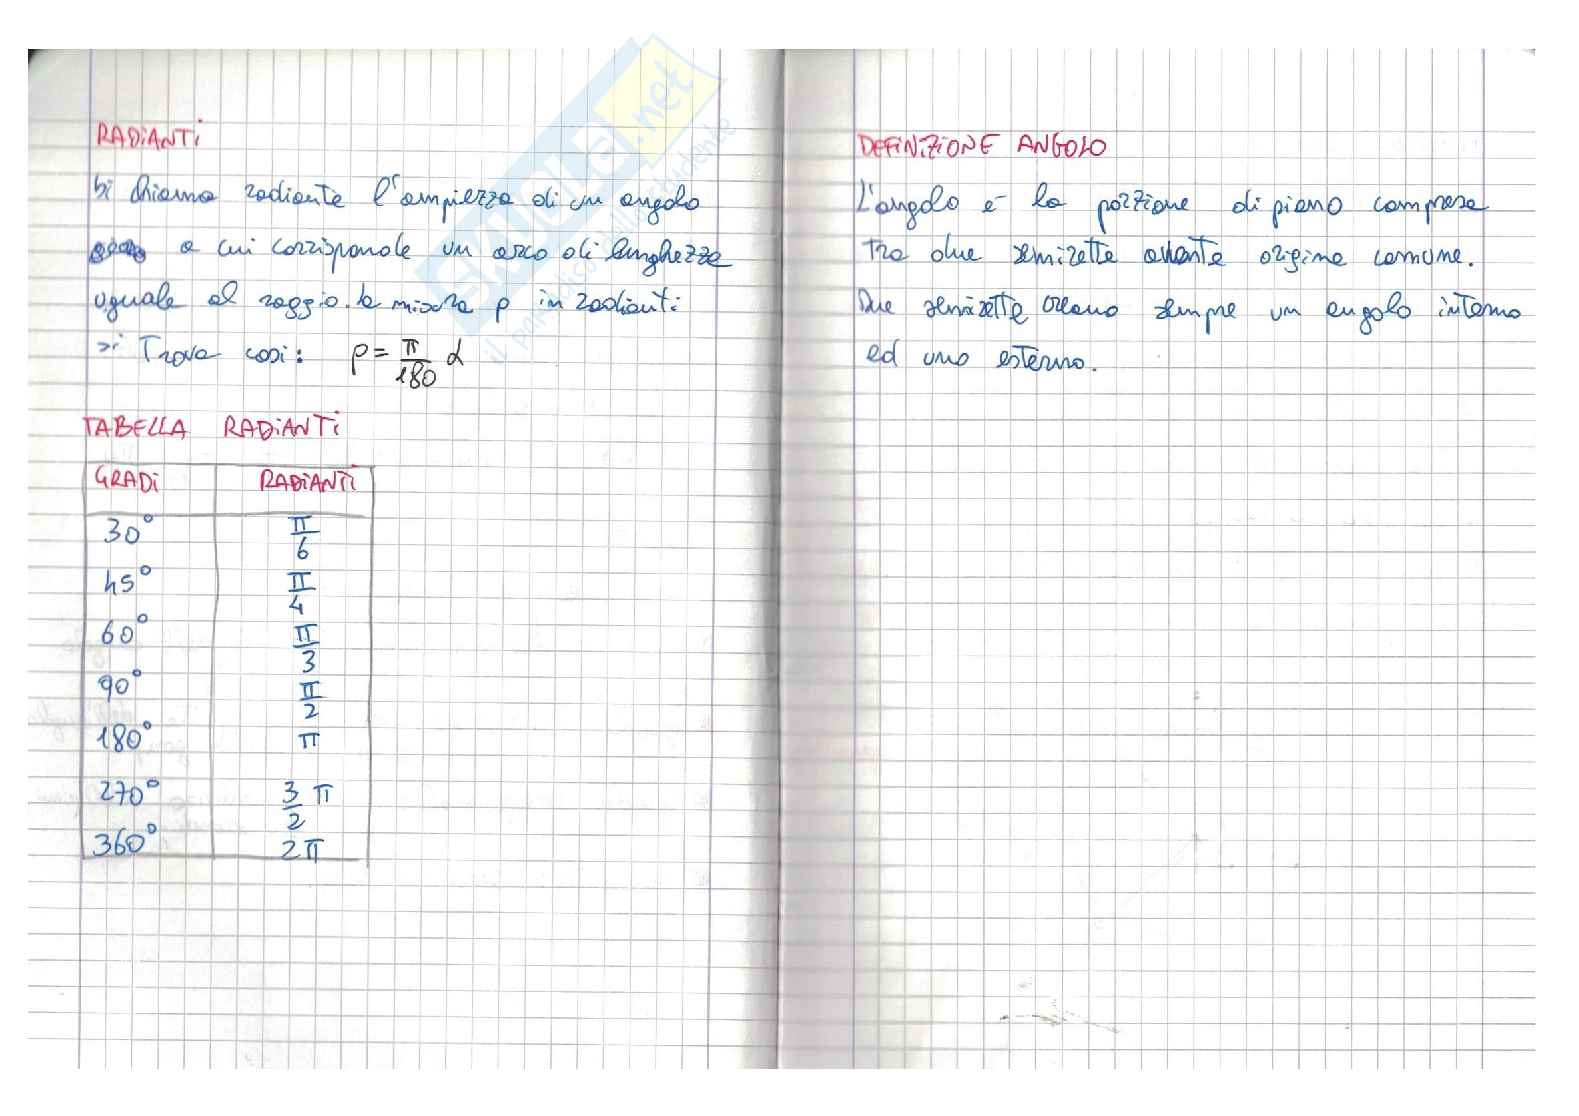 RADiANTi
Si chiama radiante l'ampiezza di un angolo
a cui corrisponde un arco di lunghezza
uguale al raggio. la misura ρ in radianti
si Trova così: ρ = π/180 α
TABELLA RADiANTi
GRADi RADiANTi
30° π/6
45° π/4
60° π/3
90° π/2
180° π
270° 3/2 π
360° 2π
DEFiNiZiONE ANGOLO
L'angolo è la porzione di piano compresa
tra due semirette avente origine comune.
Due semirette creano sempre un angolo interno
ed uno esterno.
SKUOLA.net
il paradiso dello studente